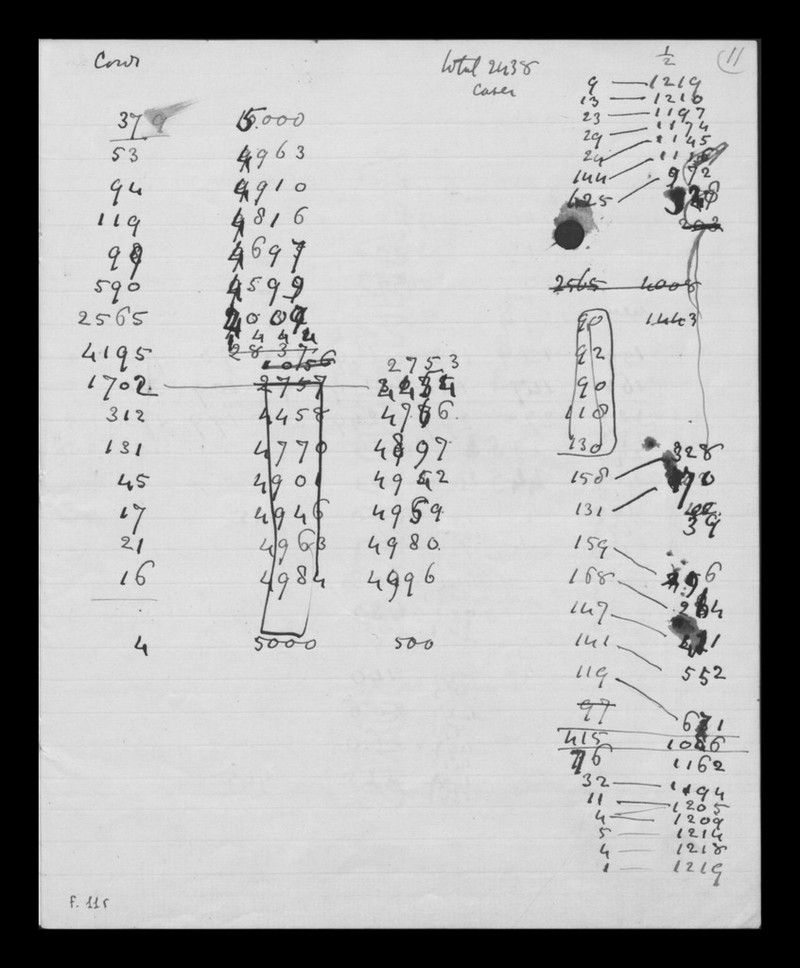 Cows
total 2438
cases
1/2
11
9 — 1219
13 — 1210
23 — 1197
29 — 1174
29 — 1145
144 — 1116
625 — 972
379 5.000
53 4963
94 4910
119 4816
98 4697
590 4599
2565 4009
2565 4008
90 1443
444
4195 2837
1056
2753
92
1702 — 2757
90
312 4458 4766
118
131 4770 4897
130
328
45 4901 4942
158
17 4946 4959
131
39
21 4963 4980
159
16 4984 4996
168
147
4 5000 500
141 552
119 671
97
415 1086
76 1162
32 — 1194
11 — 1205
4 — 1209
5 — 1214
4 — 1218
1 — 1219
F. 115